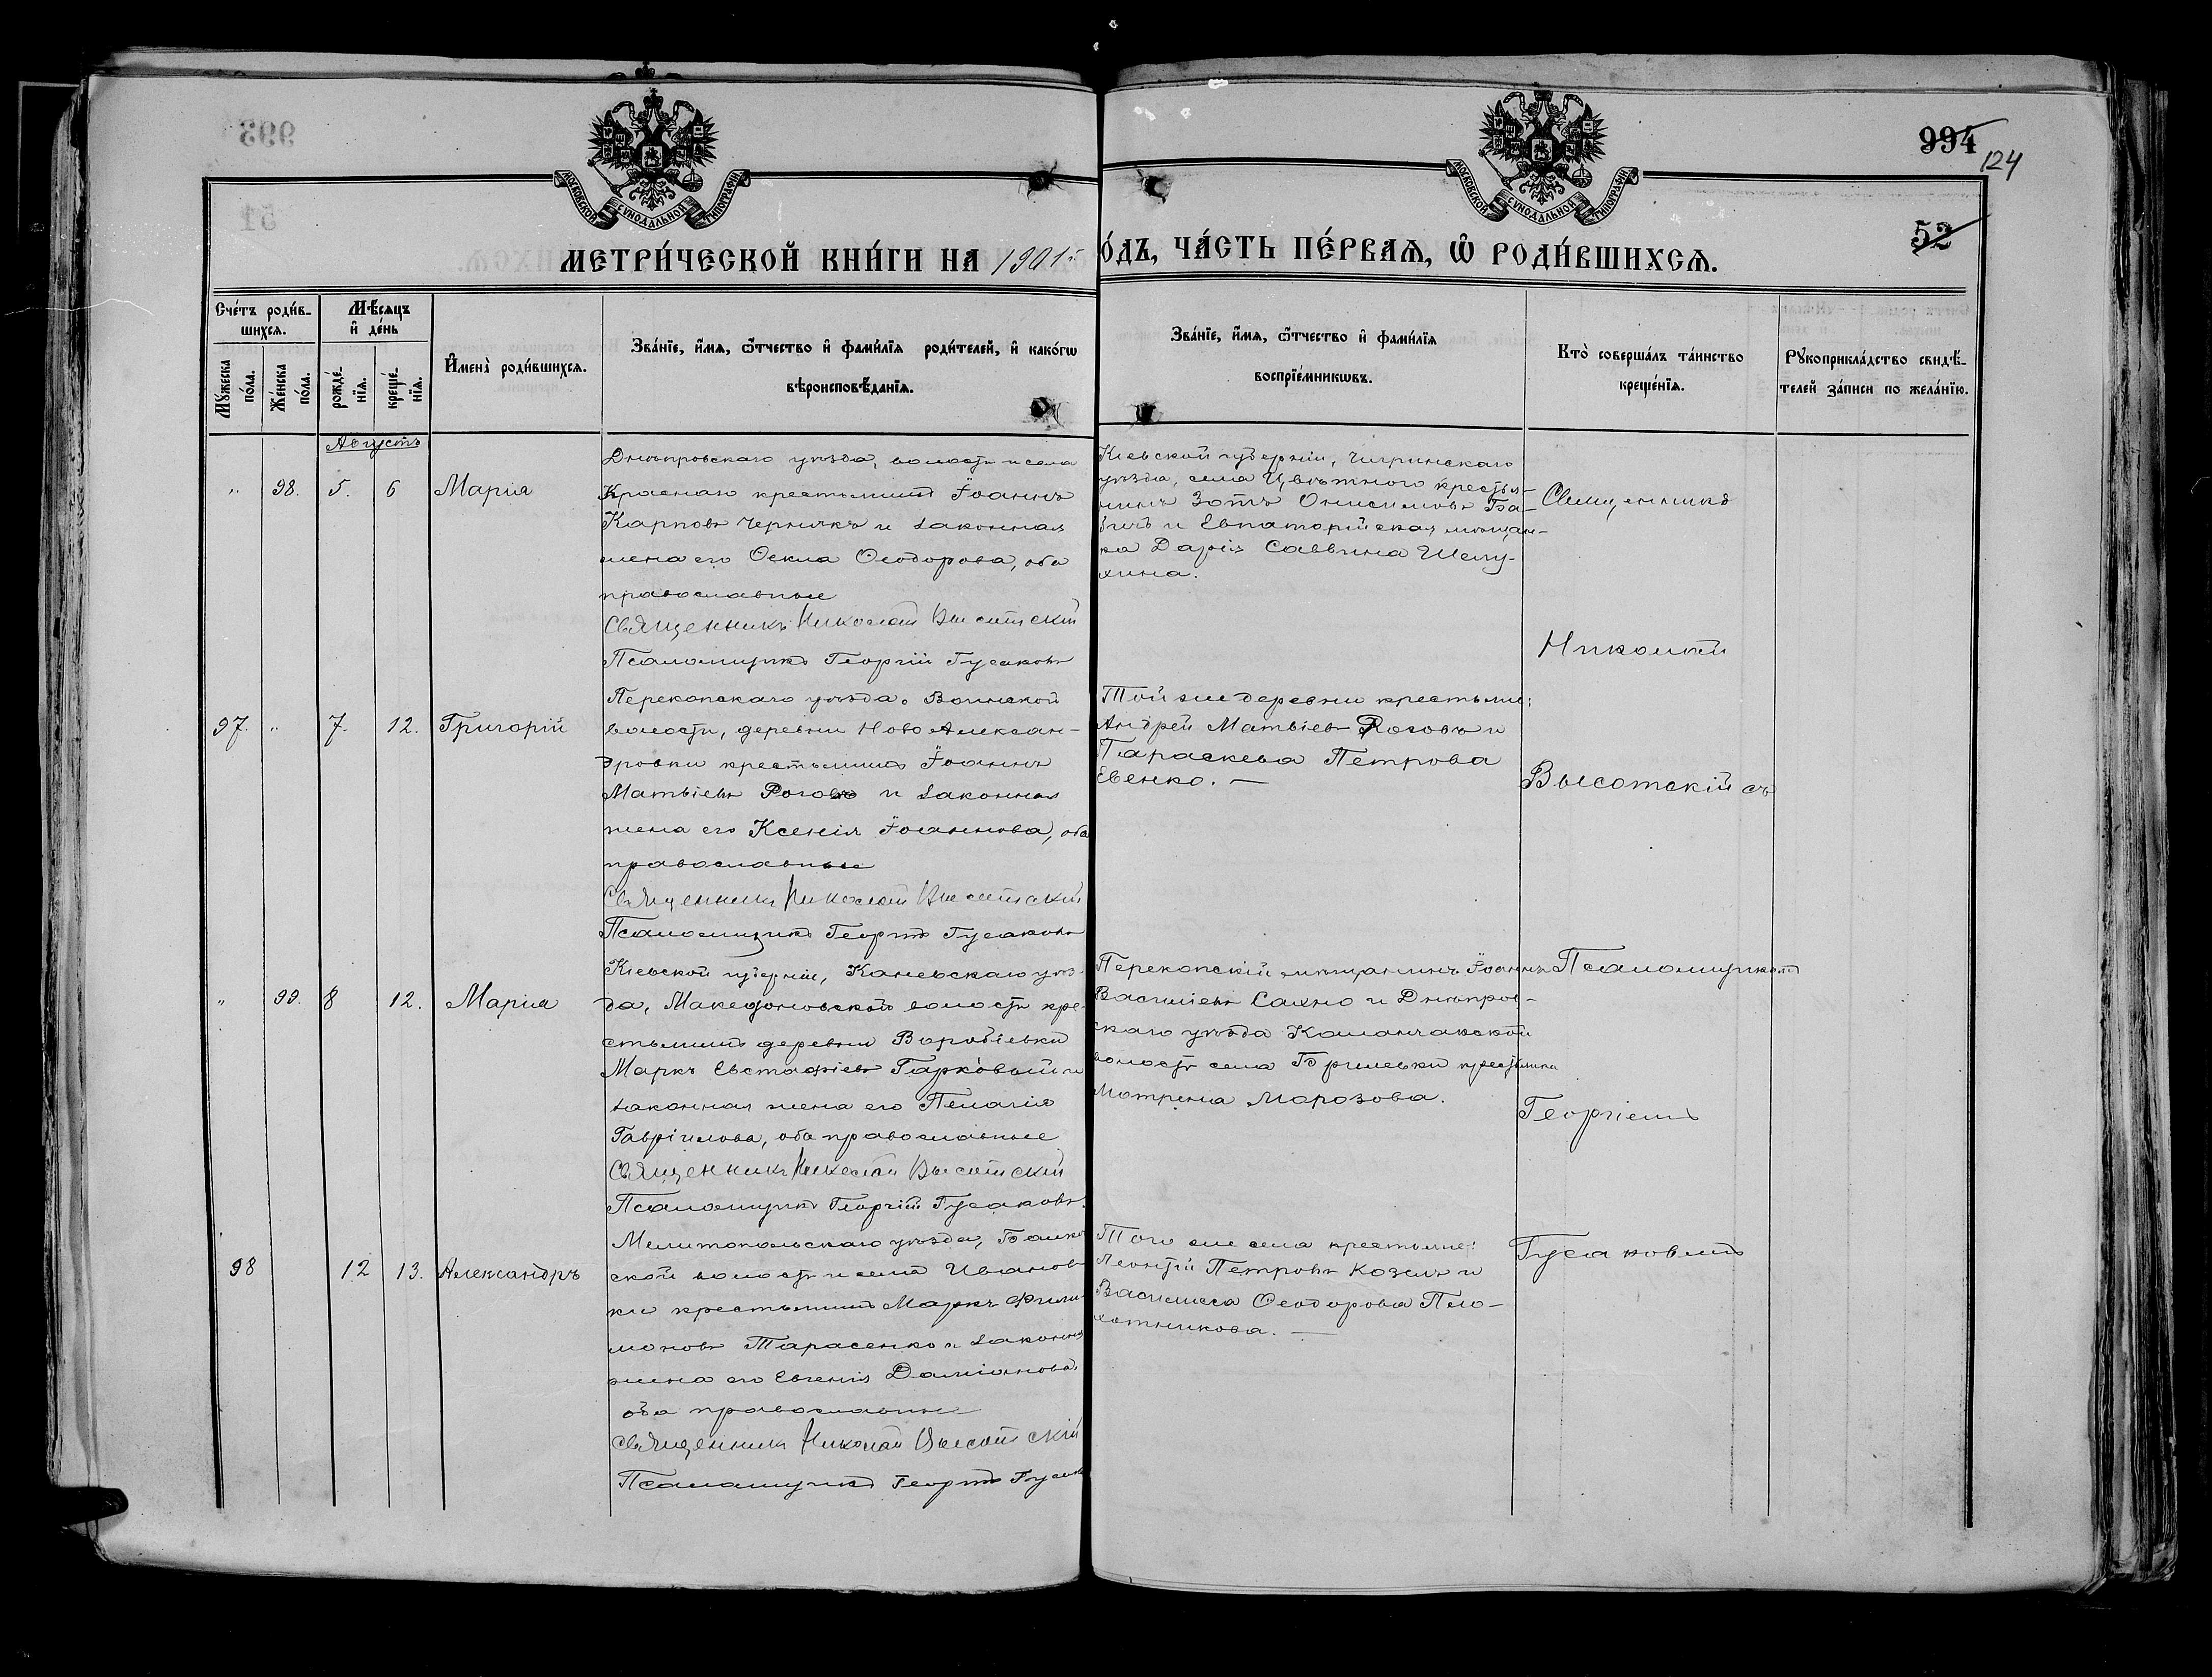 994
124
52
МОСКОВСКОЙ СУНОДАЛЬНОЙ ТИПОГРАФИИ
МОСКОВСКОЙ СУНОДАЛЬНОЙ ТИПОГРАФИИ
МЕТРИ́ЧЕСКОЙ КНИ́ГИ НА 1901
О́ДЪ, ЧА́СТЬ ПЕ́РВАѦ, Ѿ РОДИ́ВШИХСѦ.
Сче́тъ роди́в-
шихсѧ.
Мѣ́сѧцъ
и҆ де́нь
Мꙋжеска по́ла.
Же́нска по́ла.
рожде́нїѧ.
креще́нїѧ.
И҆мена̀ роди́вшихсѧ.
Зва́нїе, и҆́мѧ, ѻ҆́тчество и҆ фами́лїѧ роди́телей, и҆ како́гѡ
вѣроисповѣ́данїѧ.
Зва́нїе, и҆́мѧ, ѻ҆́тчество и҆ фами́лїѧ
воспрїе́мникѡвъ.
Кто̀ соверша́лъ та́инство
креще́нїѧ.
Рꙋкоприкла́дство свидѣ́-
телей за́писи по жела́нїю.
Августъ
" 98. 5. 6 Марія
Днѣпровскаго уѣзда, волости и села
Краснаго крестьянинъ Іоаннъ
Карповъ Чернякъ и законная
жена его Ѳекла Ѳеодорова, оба
православные
Священникъ Николай Высотскій
Псаломщикъ Георгій Гусаковъ
Кіевской губерніи, Чигринскаго
уѣзда, села Цвѣтного крестья-
нинъ Зотъ Онисимовъ Ба-
бичъ и Евпаторійская мѣщан-
ка Дарія Саввина Шелу-
хина.
Священникъ
Николай
97. " 7. 12. Григорій
Перекопскаго уѣзда, Воинской
волости, деревни Ново Алексан-
дровки крестьянинъ Іоаннъ
Матвіевъ Роговъ и законная
жена его Ксенія Іоаннова, оба
православные
Священникъ Николай Высотскій
Псаломщикъ Георгій Гусаковъ
Той же деревни крестьяне:
Андрей Матвіевъ Роговъ и
Параскева Петрова
Евенко. —
Высотскій съ
" 99. 8 12. Марія
Кіевской губерніи, Каневскаго уѣз-
да, Македоновской волости кре-
стьянинъ деревни Воробіевки
Маркъ Евстафіевъ Гарковый и
законная жена его Пелагія
Гавріилова, оба православные
Священникъ Николай Высотскій
Псаломщикъ Георгій Гусаковъ.
Перекопскій мѣщанинъ Іоаннъ
Василіевъ Сахно и Днѣпров-
скаго уѣзда Каланчакской
волости села Брилевки крестьянка
Матрена Марозова.
Псаломщикомъ
Георгіемъ
98 12 13. Александръ
Мелитопольскаго уѣзда, Балков-
ской волости и села Иванов-
ки крестьянинъ Маркъ Фили-
моновъ Тарасенко и законная
жена его Евгенія Даміанова,
оба православные
Священникъ Николай Высотскій
Псаломщикъ Георгій Гусаковъ
Того же села крестьяне:
Леонтій Петровъ Козелъ и
Василисса Ѳеодорова Пло-
хотникова. —
Гусаковымъ